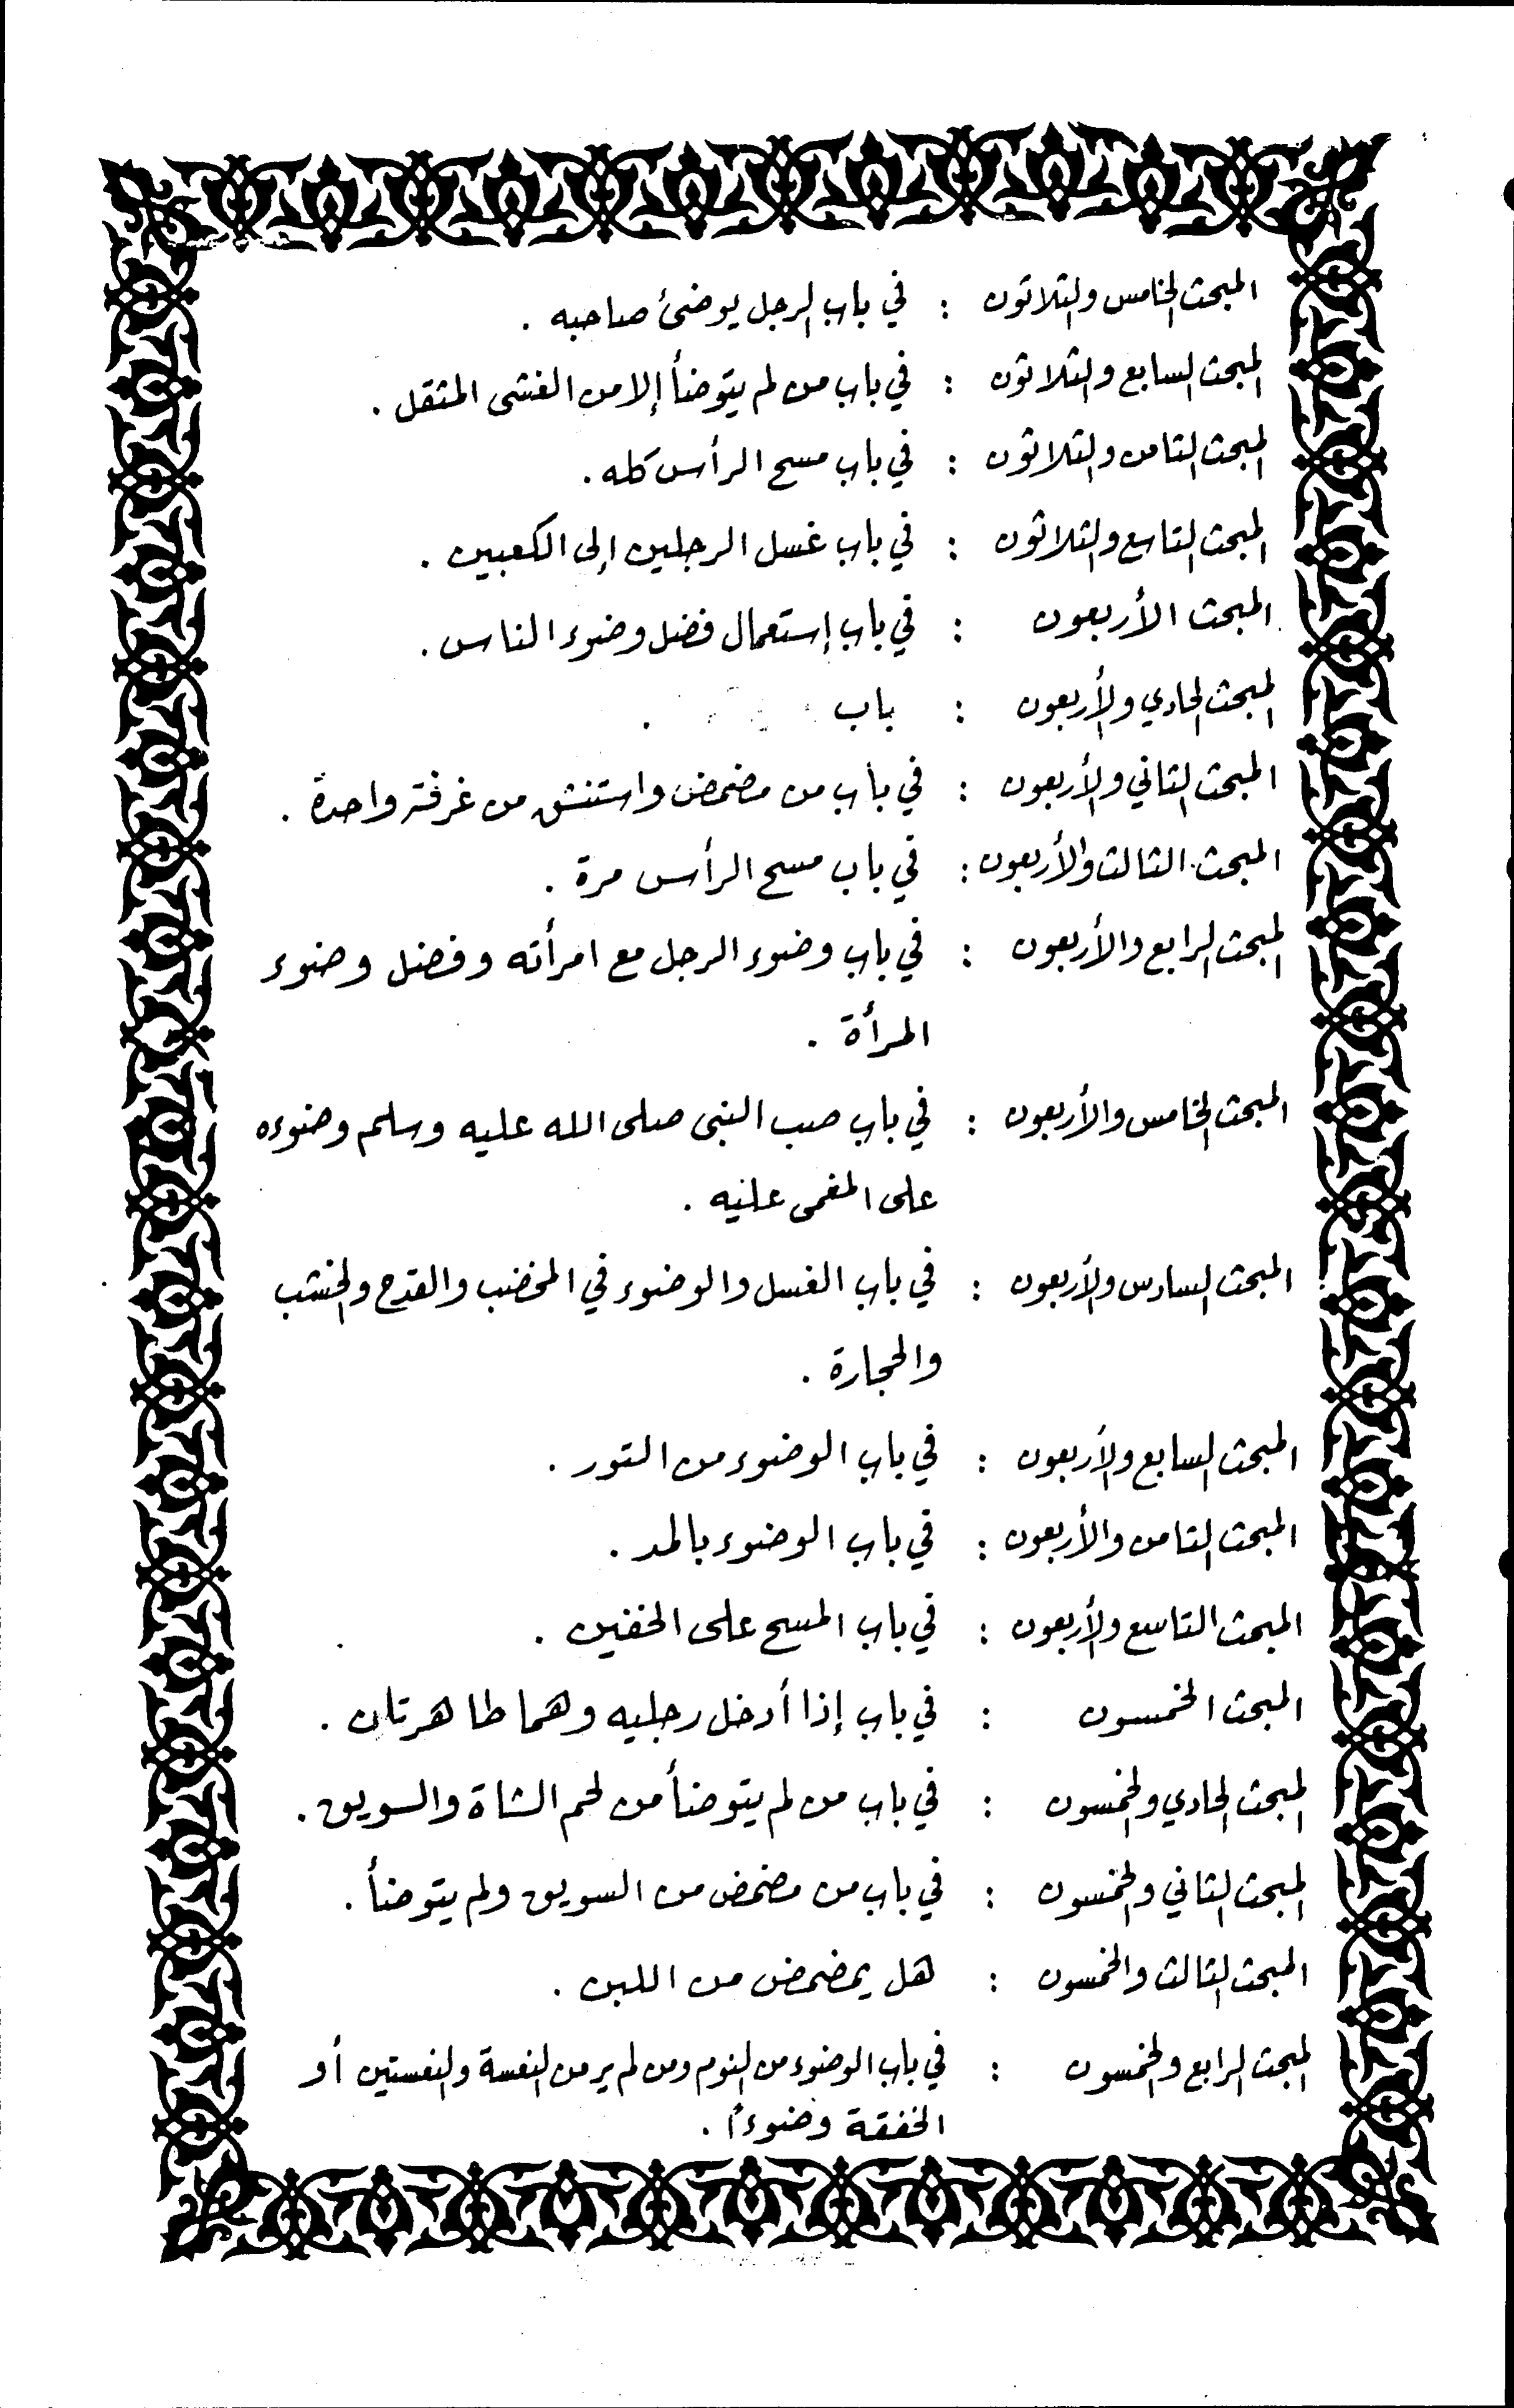 المبحث الخامس والثلاثون : في باب الرجل يوضئ صاحبه .
المبحث السابع والثلاثون : في باب من لم يتوضأ إلا من الغشى المثقل .
المبحث الثامن والثلاثون : في باب مسح الرأس كله .
المبحث التاسع والثلاثون : في باب غسل الرجلين إلى الكعبين .
المبحث الأربعون : في باب إستعمال فضل وضوء الناس .
المبحث الحادي والأربعون : باب .
المبحث الثاني والأربعون : في باب من مضمض واستنشق من غرفة واحدة .
المبحث الثالث والأربعون : في باب مسح الرأس مرة .
المبحث الرابع والأربعون : في باب وضوء الرجل مع امرأته وفضل وضوء
المرأة .
المبحث الخامس والأربعون : في باب صب النبى صلى الله عليه وسلم وضوءه
على المغمى عليه .
المبحث السادس والأربعون : في باب الغسل والوضوء في المخضب والقدح والخشب
والحجارة .
المبحث السابع والأربعون : في باب الوضوء من التور .
المبحث الثامن والأربعون : في باب الوضوء بالمد .
المبحث التاسع والأربعون : في باب المسح على الخفين .
المبحث الخمسون : في باب إذا أدخل رجليه وهما طاهرتان .
المبحث الحادي والخمسون : في باب من لم يتوضأ من لحم الشاة والسويق .
المبحث الثاني والخمسون : في باب من مضمض من السويق ولم يتوضأ .
المبحث الثالث والخمسون : هل يمضمض من اللبن .
المبحث الرابع والخمسون : في باب الوضوء من النوم ومن لم ير من النعسة والنعستين أو
الخفقة وضوءاً .